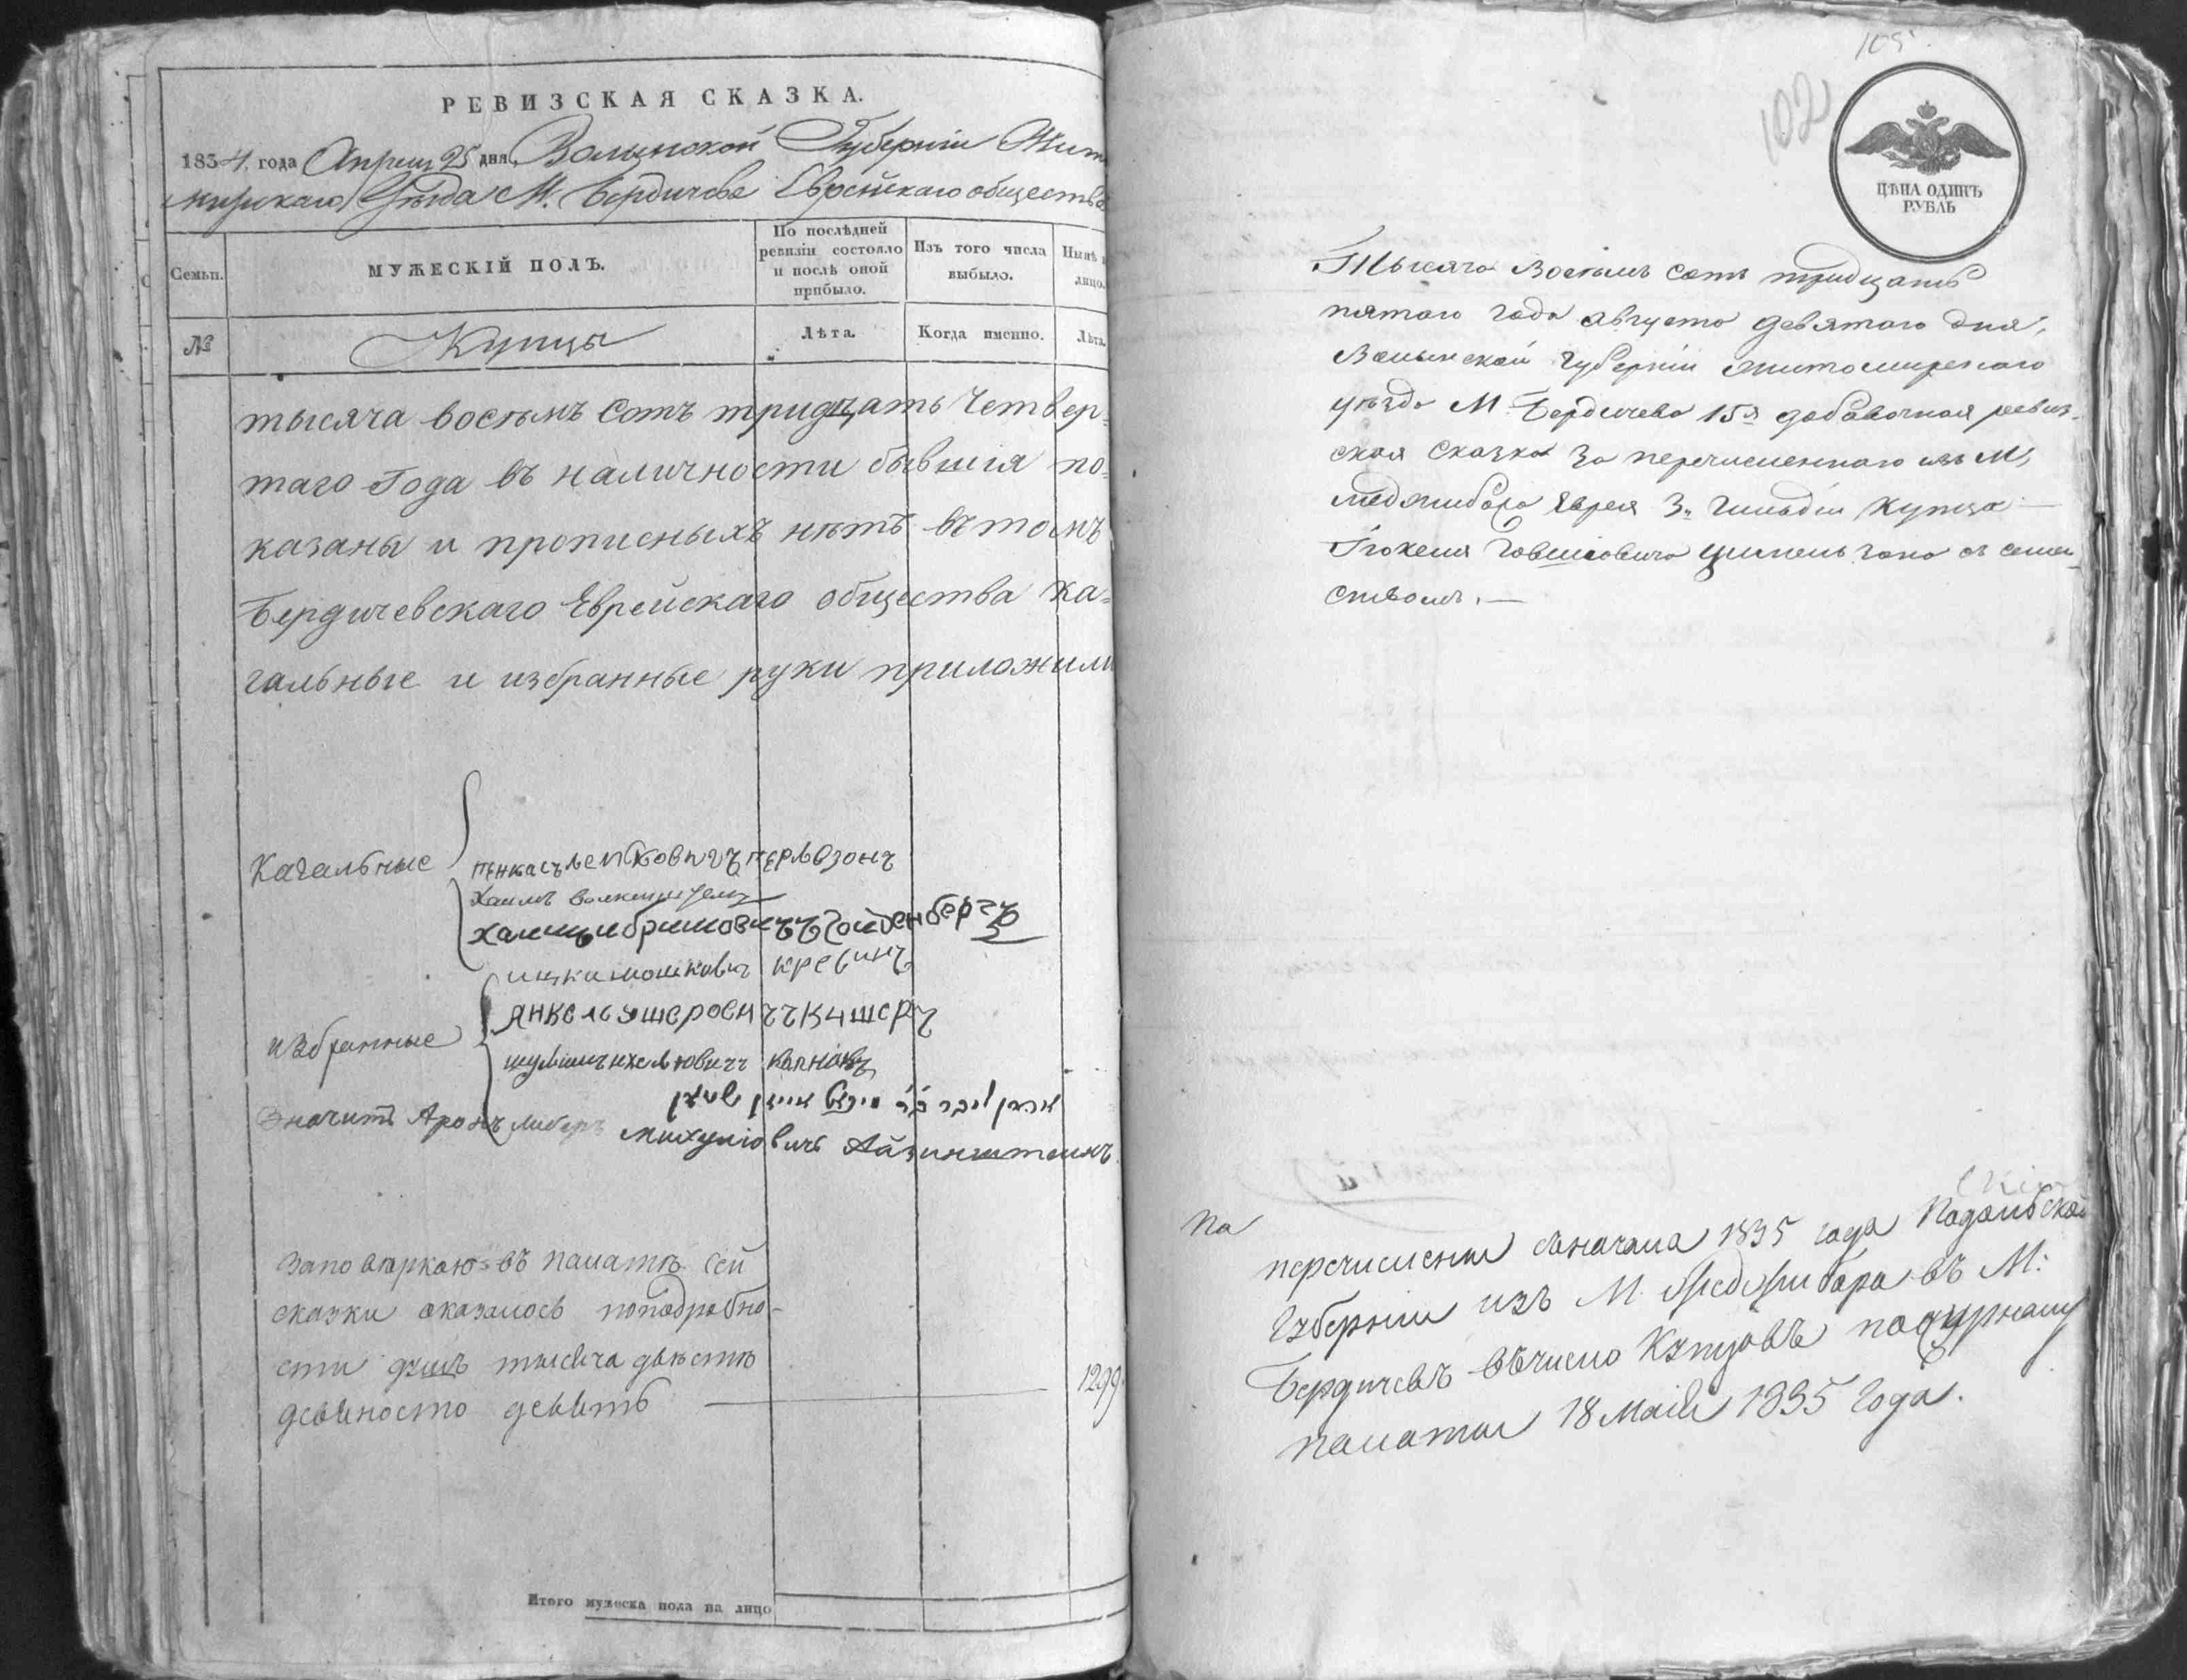 РЕВИЗСКАЯ СКАЗКА.
1834. года Апреля 25 дня, Волынской Губерніи Жито
мирскаго Уѣзда М. Бердичева Еврейскаго общества
Семьи.
МУЖЕСКІЙ ПОЛЪ.
По послѣдней ревизіи состояло и послѣ оной прибыло.
Изъ того числа выбыло.
Нынѣ
лицо.
№
Купцы
Лѣта.
Когда именно.
Лѣта.
тысяча восемъ сотъ тридцать Четвер=
таго Года въ наличности бывшія по=
казаны и прописныхъ нѣтъ въ томъ
Бердичевскаго Еврейскаго общества Ка=
гальные и избранные руки приложили
Кагальные
пенкасъ лейковичъ перлзонъ
Хаимъ
Хаимъ иброимовичъ Гольденбергъ
ицка мошкович кревинъ
Янкель ушеровичъ кишеръ
избранные
Значитъ Аронъ Либеръ
Михулювичъ Айзинштеинъ
Заповѣркою въ палатѣ сей
сказки оказалось поподробно-
сти душъ тысяча двѣстѣ
девяносто девять — 1299.
Итого мужеска пола на лицо
105
102
ЦѢНА ОДИНЪ
РУБЛЬ
Тысяча восемъ сотъ тридцать
пятого года августа девятого дня,
Волынской губерніи житомирскаго
уѣзда М. Бердичева 15я добавочная ревиз-
ская сказка за перечисленного изъ М,
Меджибожа Еврея 3й гильдіи купца —
с семей-
ствомъ. —
На
перечисленъ съ начала 1835 года Подольской
Губерніи изъ М. Меджибора въ М:
Бердичевъ въ число Купцовъ по журналу
палаты 18 Маія 1835 Года.